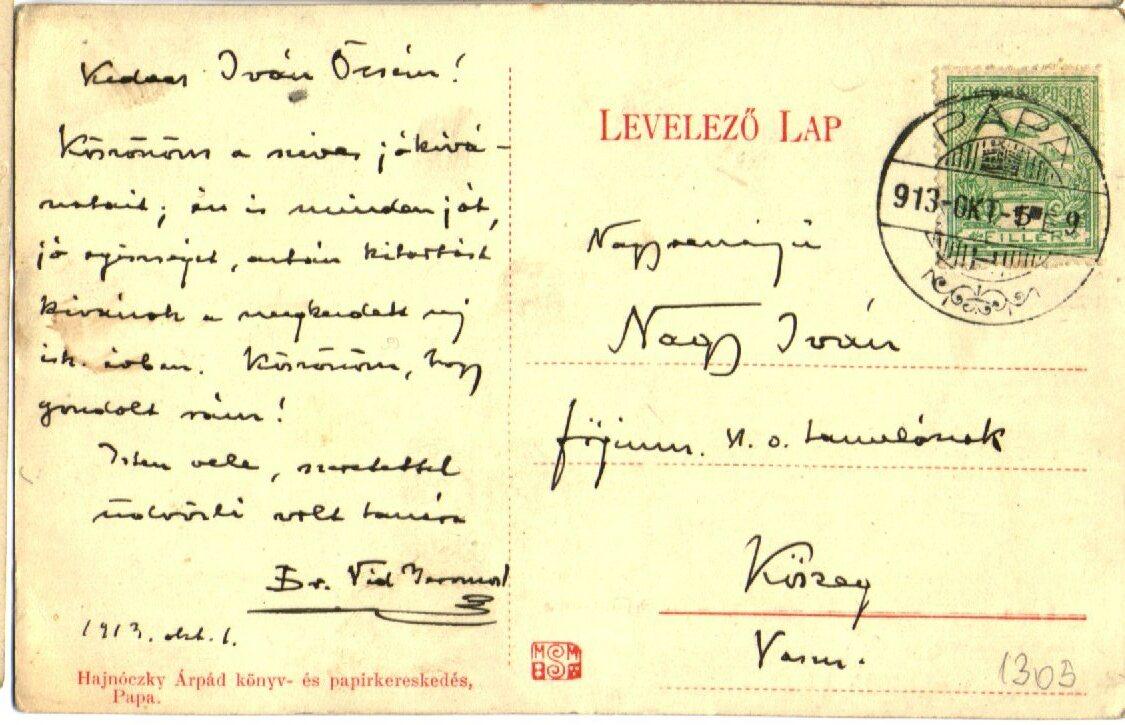 Kedves Iván Öcsém!
Köszönöm a szives jókivá-
natait; én is minden jót,
jó egészséget, aztán kitartást
kivánok a megkezdett uj
isk. évben. Köszönöm, hogy
gondolt rám!
Isten vele, szeretettel
üdvözli volt tanára
Dr. Vid
1913. okt. 1.
Hajnóczky Árpád könyv- és papírkereskedés,
Papa.
LEVELEZŐ LAP
PÁPA
913-OKT
FILLÉR
Nagyreményű
Nagy Iván
főgimn. VI. o. tanulónak
Kőszeg
Vasm.
1303